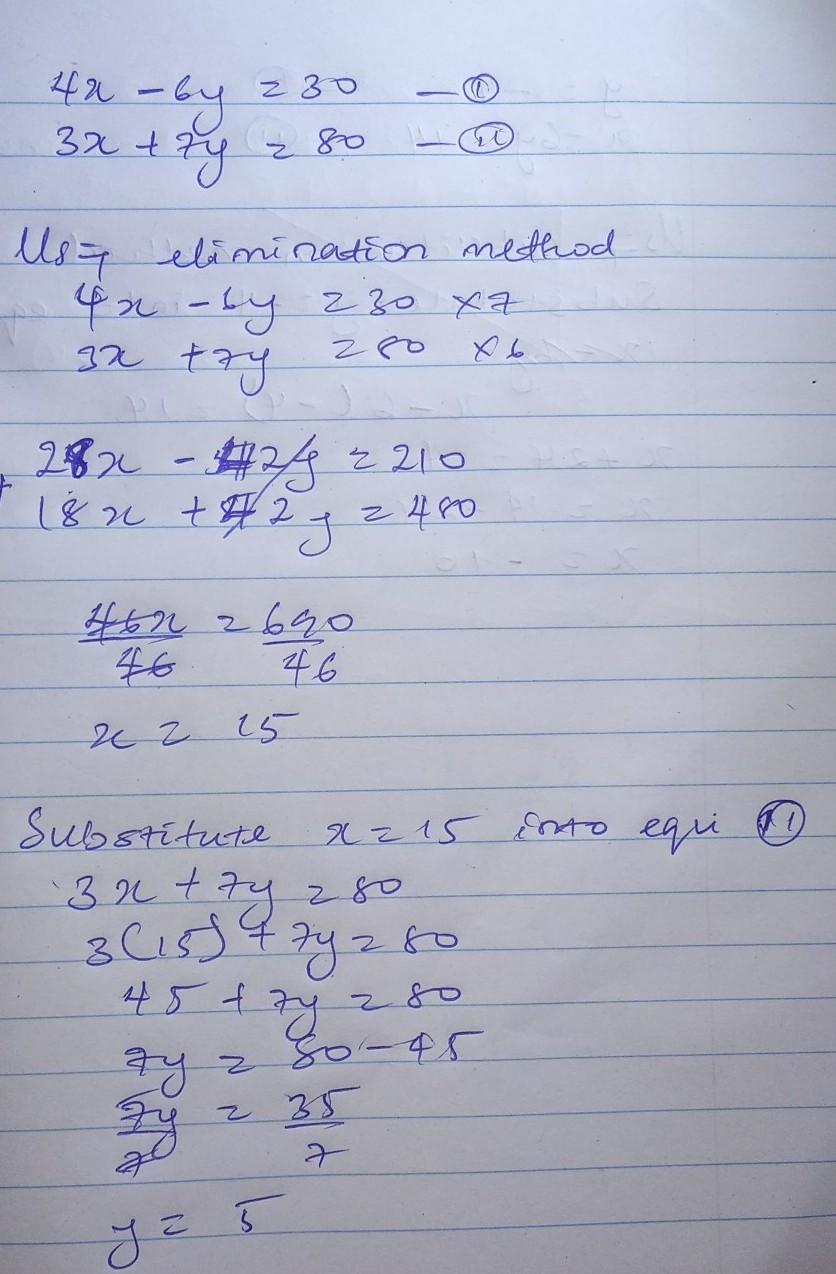 4x - 6y = 30 — (i)
3x + 7y = 80 — (ii)
Using elimination method
4x - 6y = 30 x7
3x + 7y = 80 x6
28x - 42y = 210
+ 18x + 42y = 480
46x = 690
46 46
x = 15
Substitute x = 15 into equ (ii)
3x + 7y = 80
3(15) + 7y = 80
45 + 7y = 80
7y = 80 - 45
7y = 35
7 7
y = 5